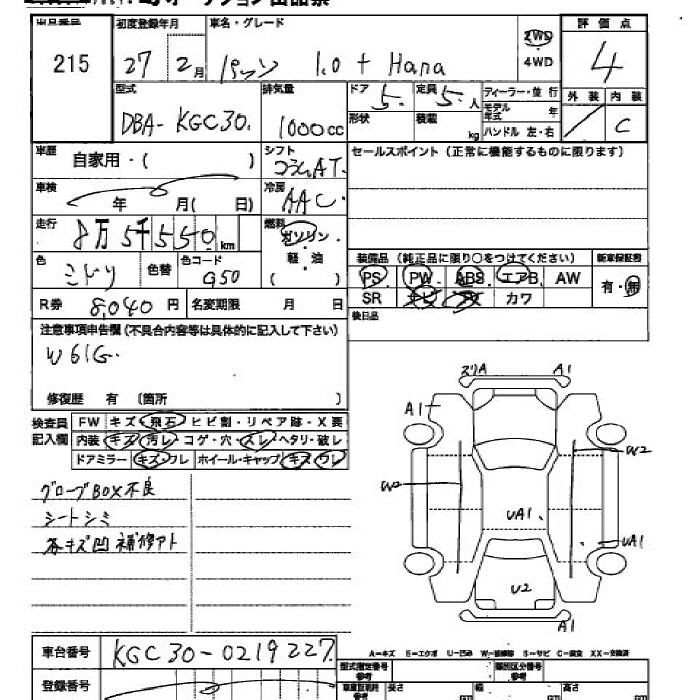 出品番号 初度登録年月 車名・グレード 評価点
215 27年 2月 パッソ 1.0 + Hana 2WD 4WD 4
型式 排気量 ドア 5. 定員 5. 人 ディーラー・並行 外装 内装
DBA- KGC30. 1000cc 形状 積載 kg モデル年式 年 ハンドル 左・右 / C
車歴 自家用・( ) シフト コラムAT. セールスポイント(正常に機能するものに限ります)
車検 年 月( 日) 冷房 AAC.
走行 8万5千550km 燃料 ガソリン・軽・油 ( )
色 ミドリ 色替 色コード G50 装備品(純正品に限り○をつけてください) 新車保証書
PS PW ABS エアB AW 有・無
R券 8,040円 名変期限 月 日 SR ナビ カワ
注意事項申告欄(不具合内容等は具体的に記入して下さい) 後日品
W61G.
修復歴 有 〔箇所 〕
検査員記入欄 FW キズ・飛石・ヒビ割・リペア跡・X要
内装 キズ・汚レ・コゲ・穴・スレ・ヘタリ・破レ
ドアミラー キズ・ワレ ホイール・キャップ キズ・ワレ
グローブBOX不良
シートシミ
各キズ凹 補修アト
スリA A1
A1
W2
W2
UA1.
UA1
U2
A1
車台番号 KGC30-0219227.
A-キズ E-エクボ U-凹み W-補修跡 S-サビ C-腐食 XX-交換済
登録番号 型式指定番号 参考 類別区分番号 参考
長さ 幅 高さ